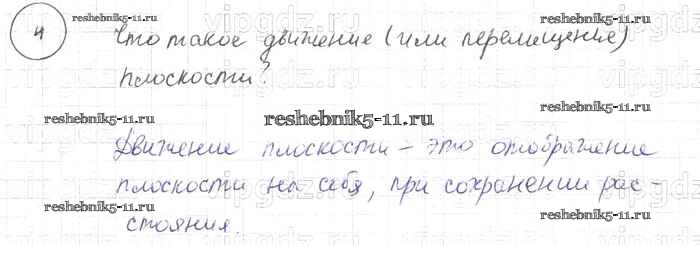 reshebnik5-11.ru
4 Что такое движение (или перемещенье)
плоскости?
reshebnik5-11.ru
reshebnik5-11.ru
reshebnik5-11.ru
Движение плоскости – это отображение
плоскости на себя, при сохранении рас-
стояния.
reshebnik5-11.ru
reshebnik5-11.ru